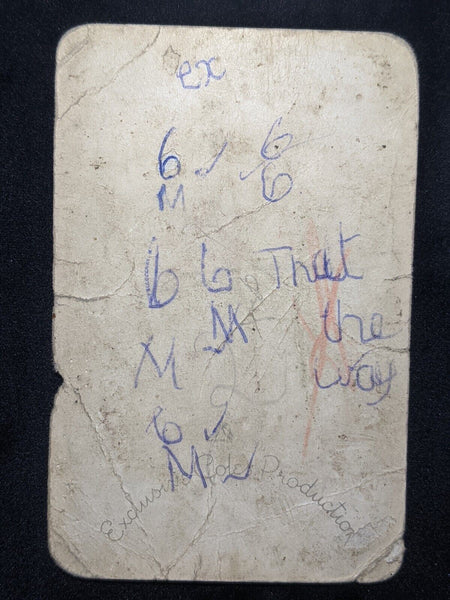 ex
6 ✓ 6
M ✓ 6
6 6 That
M the
M ✓ way
6 ✓
M ✓
Exclusive Photo Production